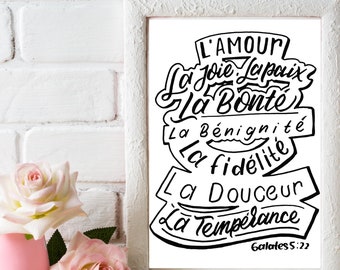 L'AMOUR
La Joie La paix
La Bonté
La Bénignité
La fidélité
La Douceur
La Tempérance
Galates 5:22